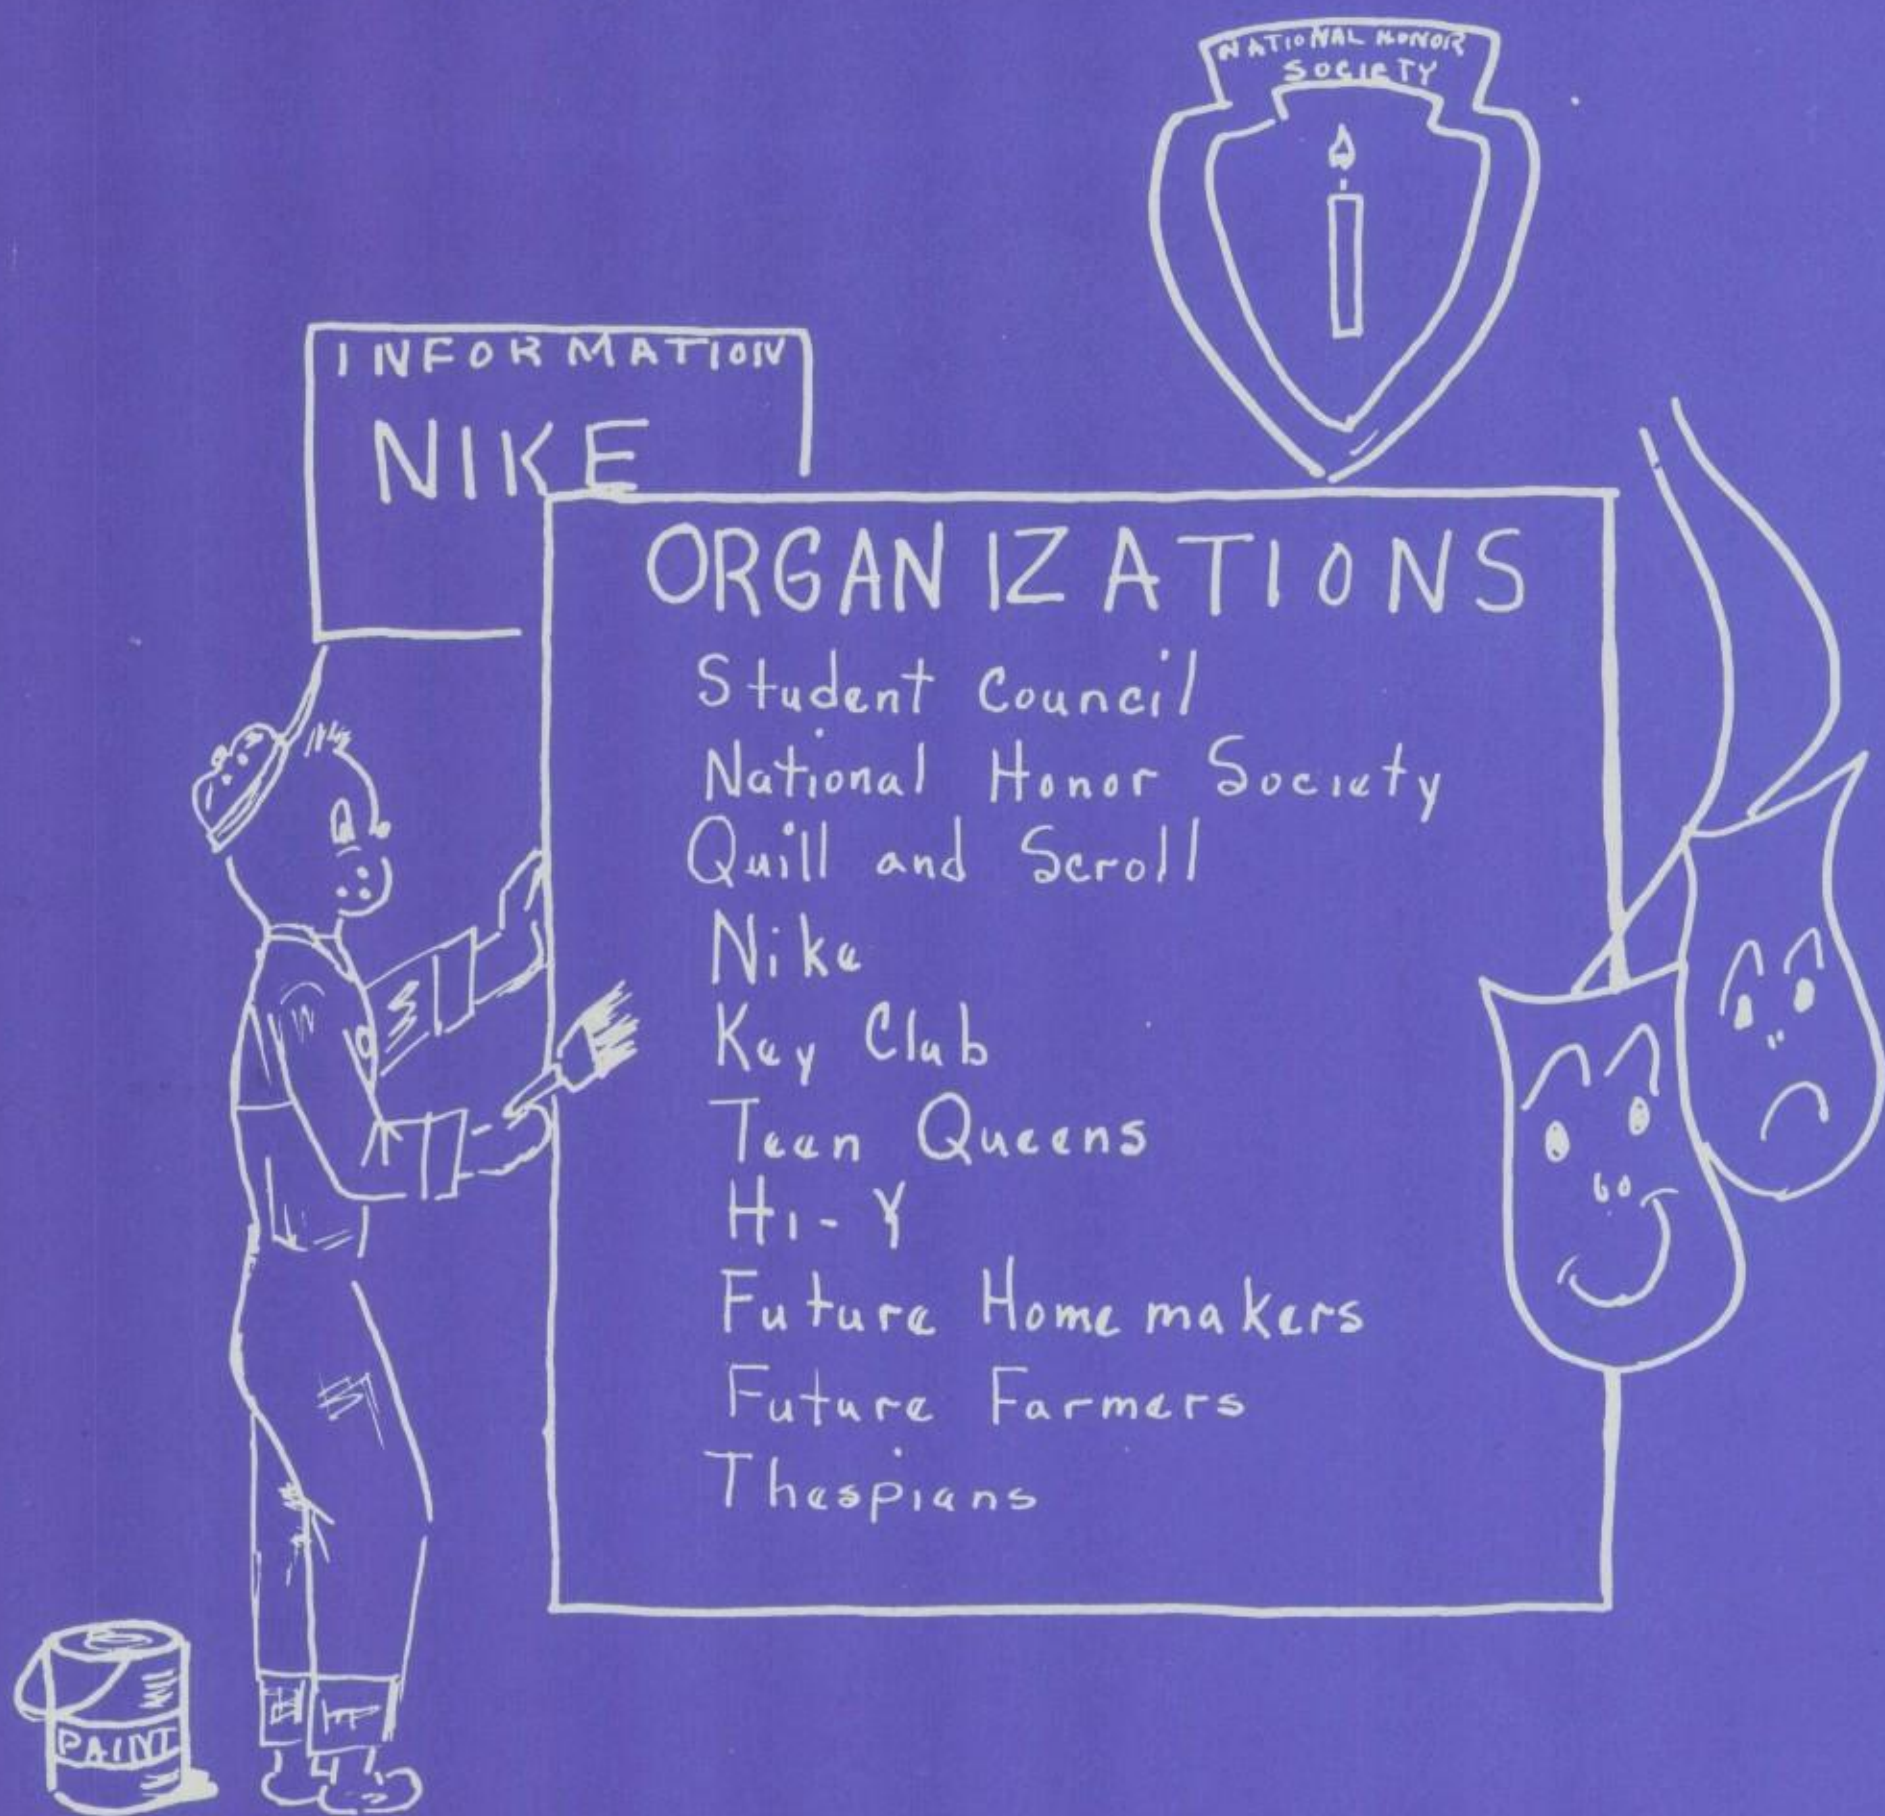 NATIONAL HONOR
SOCIETY
INFORMATION
NIKE
ORGANIZATIONS
Student Council
National Honor Society
Quill and Scroll
Nike
Key Club
Teen Queens
Hi-Y
Future Homemakers
Future Farmers
Thespians
PAINT